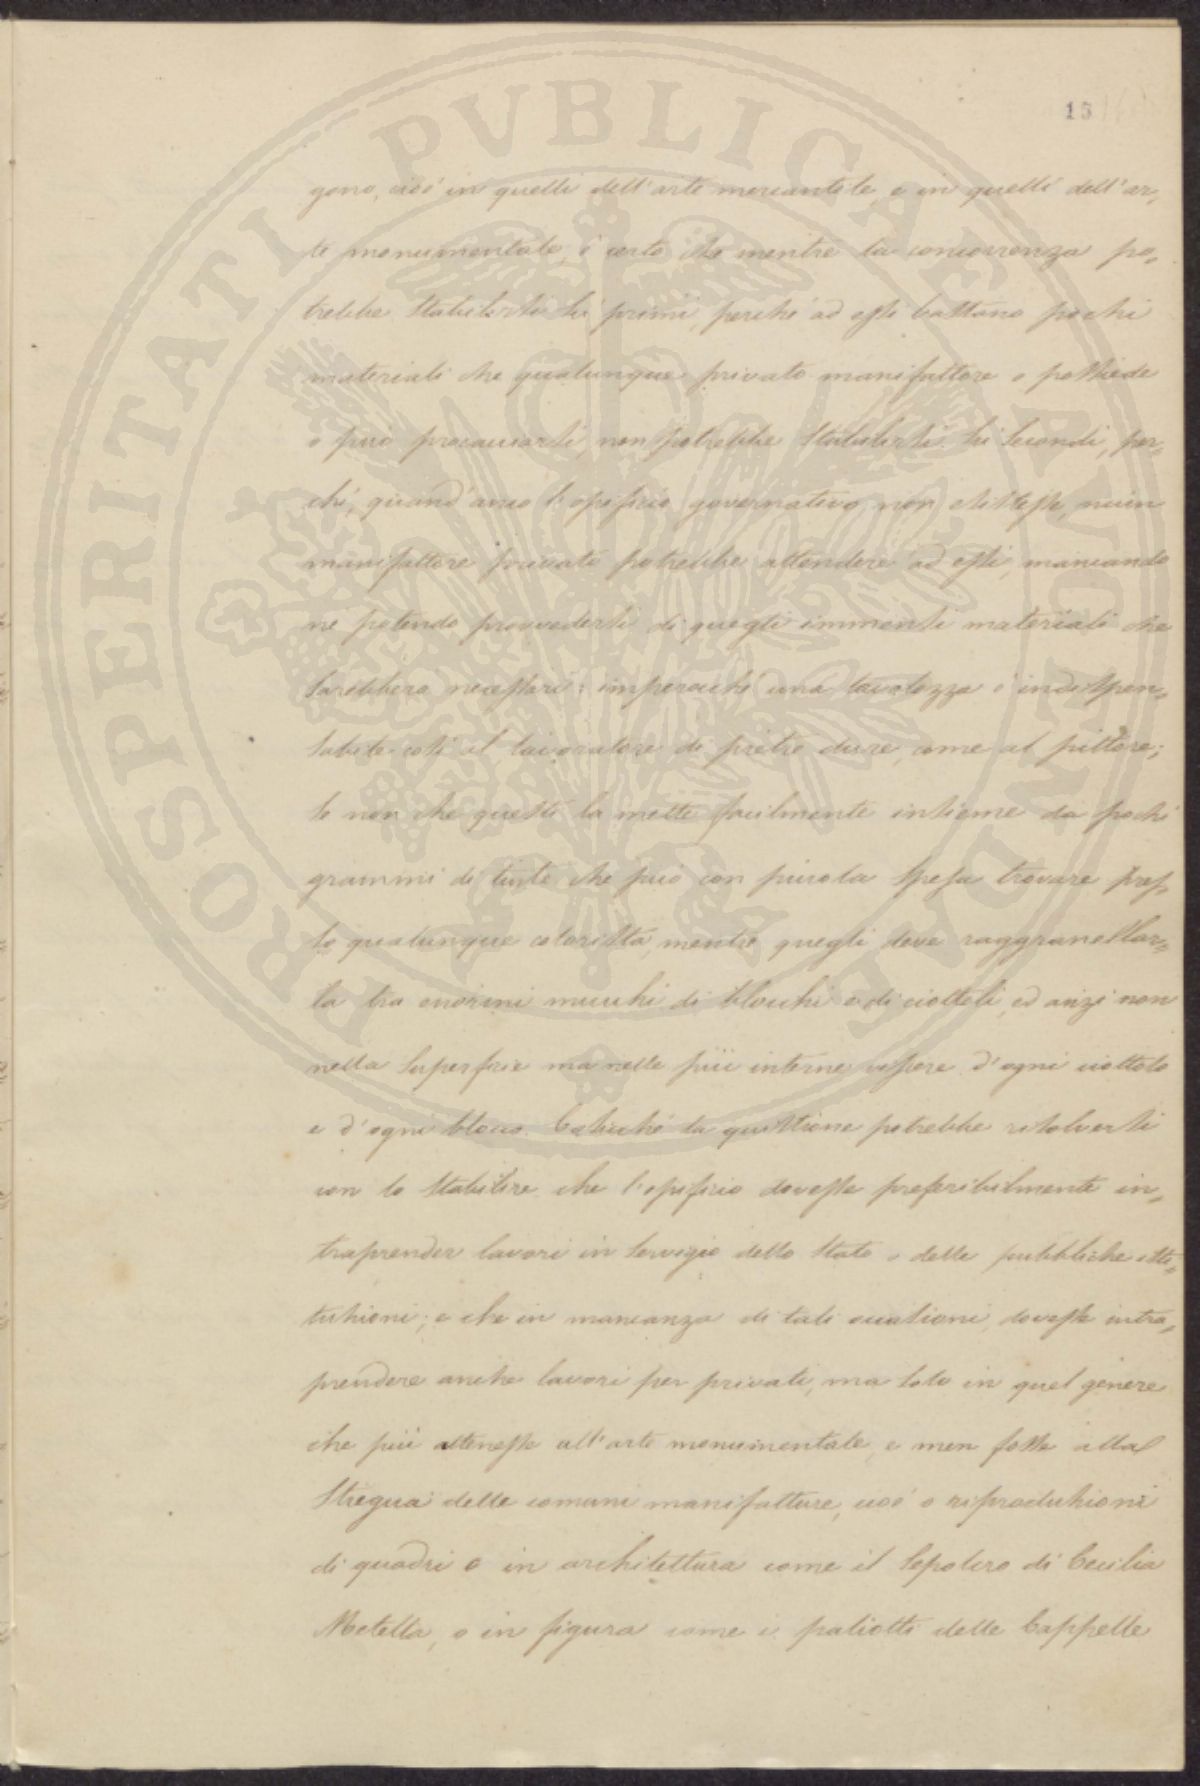 15
gono, cioè in quelli dell'arte mercantile, e in quelli dell'ar-
te monumentale, è certo che mentre la concorrenza po-
trebbe stabilirsi sui primi, perché ad essi bastano pochi
materiali che qualunque privato manifattore o possiede
o può procacciarsi, non potrebbe stabilirsi sui secondi, per-
ché, quand'anco l'opificio governativo non esistesse, niun
manifattore privato potrebbe attendere ad essi, mancando
né potendo provvedersi di quegli immensi materiali che
sarebbero necessari: imperocché una tavolozza è indispen-
sabile così al lavoratore di pietre dure, come al pittore;
se non che questi la mette facilmente insieme da pochi
grammi di tinte che può con piccola spesa trovare pres-
so qualunque colorista, mentre quegli deve raggranellar-
la tra enormi mucchi di blocchi e di ciottoli, ed anzi non
nella superficie ma nelle più interne viscere d'ogni ciottolo
e d'ogni blocco. Calcché la questione potrebbe risolversi
con lo stabilire che l'opificio dovesse preferibilmente in-
traprender lavori in servigio dello Stato o delle pubbliche isti-
tuzioni; e che in mancanza di tali occasioni, dovesse intra-
prendere anche lavori per privati, ma solo in quel genere
che più attenesse all'arte monumentale, e men fosse alla
stregua delle comuni manifatture, cioè o riproduzioni
di quadri o in architettura come il Sepolcro di Cecilia
Metella, o in figura come i paliotti delle Cappelle
PROSPERITATI PVBLICAE AVGENDAE